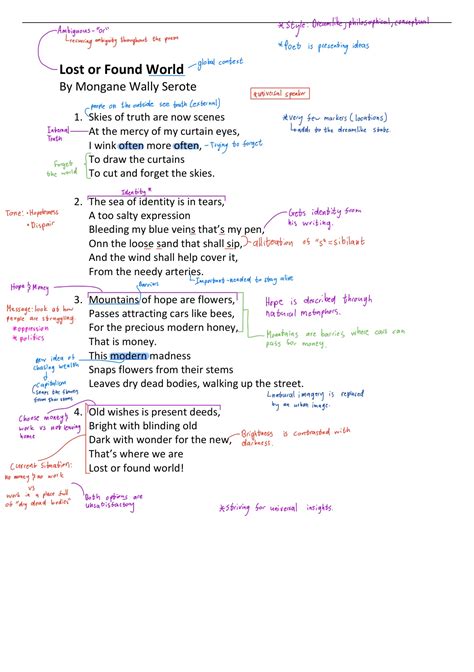 Ambiguous - "or"
↳ recurring ambiguity throughout the poem
* Style: Dreamlike, philosophical, conceptual
* Poet is presenting ideas
global context
Lost or Found World
By Mongane Wally Serote
* universal speaker
people on the outside see truth (external)
1. Skies of truth are now scenes
At the mercy of my curtain eyes,
I wink often more often, - Trying to forget
To draw the curtains
To cut and forget the skies.
Internal Truth
Forget the world
* Very few markers (locations)
↳ adds to the dreamlike state.
Identity *
2. The sea of identity is in tears,
A too salty expression
Bleeding my blue veins that's my pen,
Onn the loose sand that shall sip,
And the wind shall help cover it,
From the needy arteries.
Tone: • Hopelessness
• Dispair
Gets identity from his writing.
alliteration of "s" = sibilant
Important - needed to stay alive
Hope & Money
Barriers
3. Mountains of hope are flowers,
Passes attracting cars like bees,
For the precious modern honey,
That is money.
This modern madness
Snaps flowers from their stems
Leaves dry dead bodies, walking up the street.
Message: look at how people are struggling.
* oppression
* politics
new idea of chasing wealth
↳ Capitalism
snaps the flowers from their stems
Hope is described through natural metaphors.
Mountains are barries, where cars can pass for money.
↳ natural imagery is replaced by an urban image.
4. Old wishes is present deeds,
Bright with blinding old
Dark with wonder for the new,
That's where we are
Lost or found world!
Choose money & work vs not leaving home
Brightness is contrasted with darkness.
Current Situation:
no money & no work
vs
work in a place full of "dry dead bodies"
Both options are unsatisfactory
* Striving for universal insights.